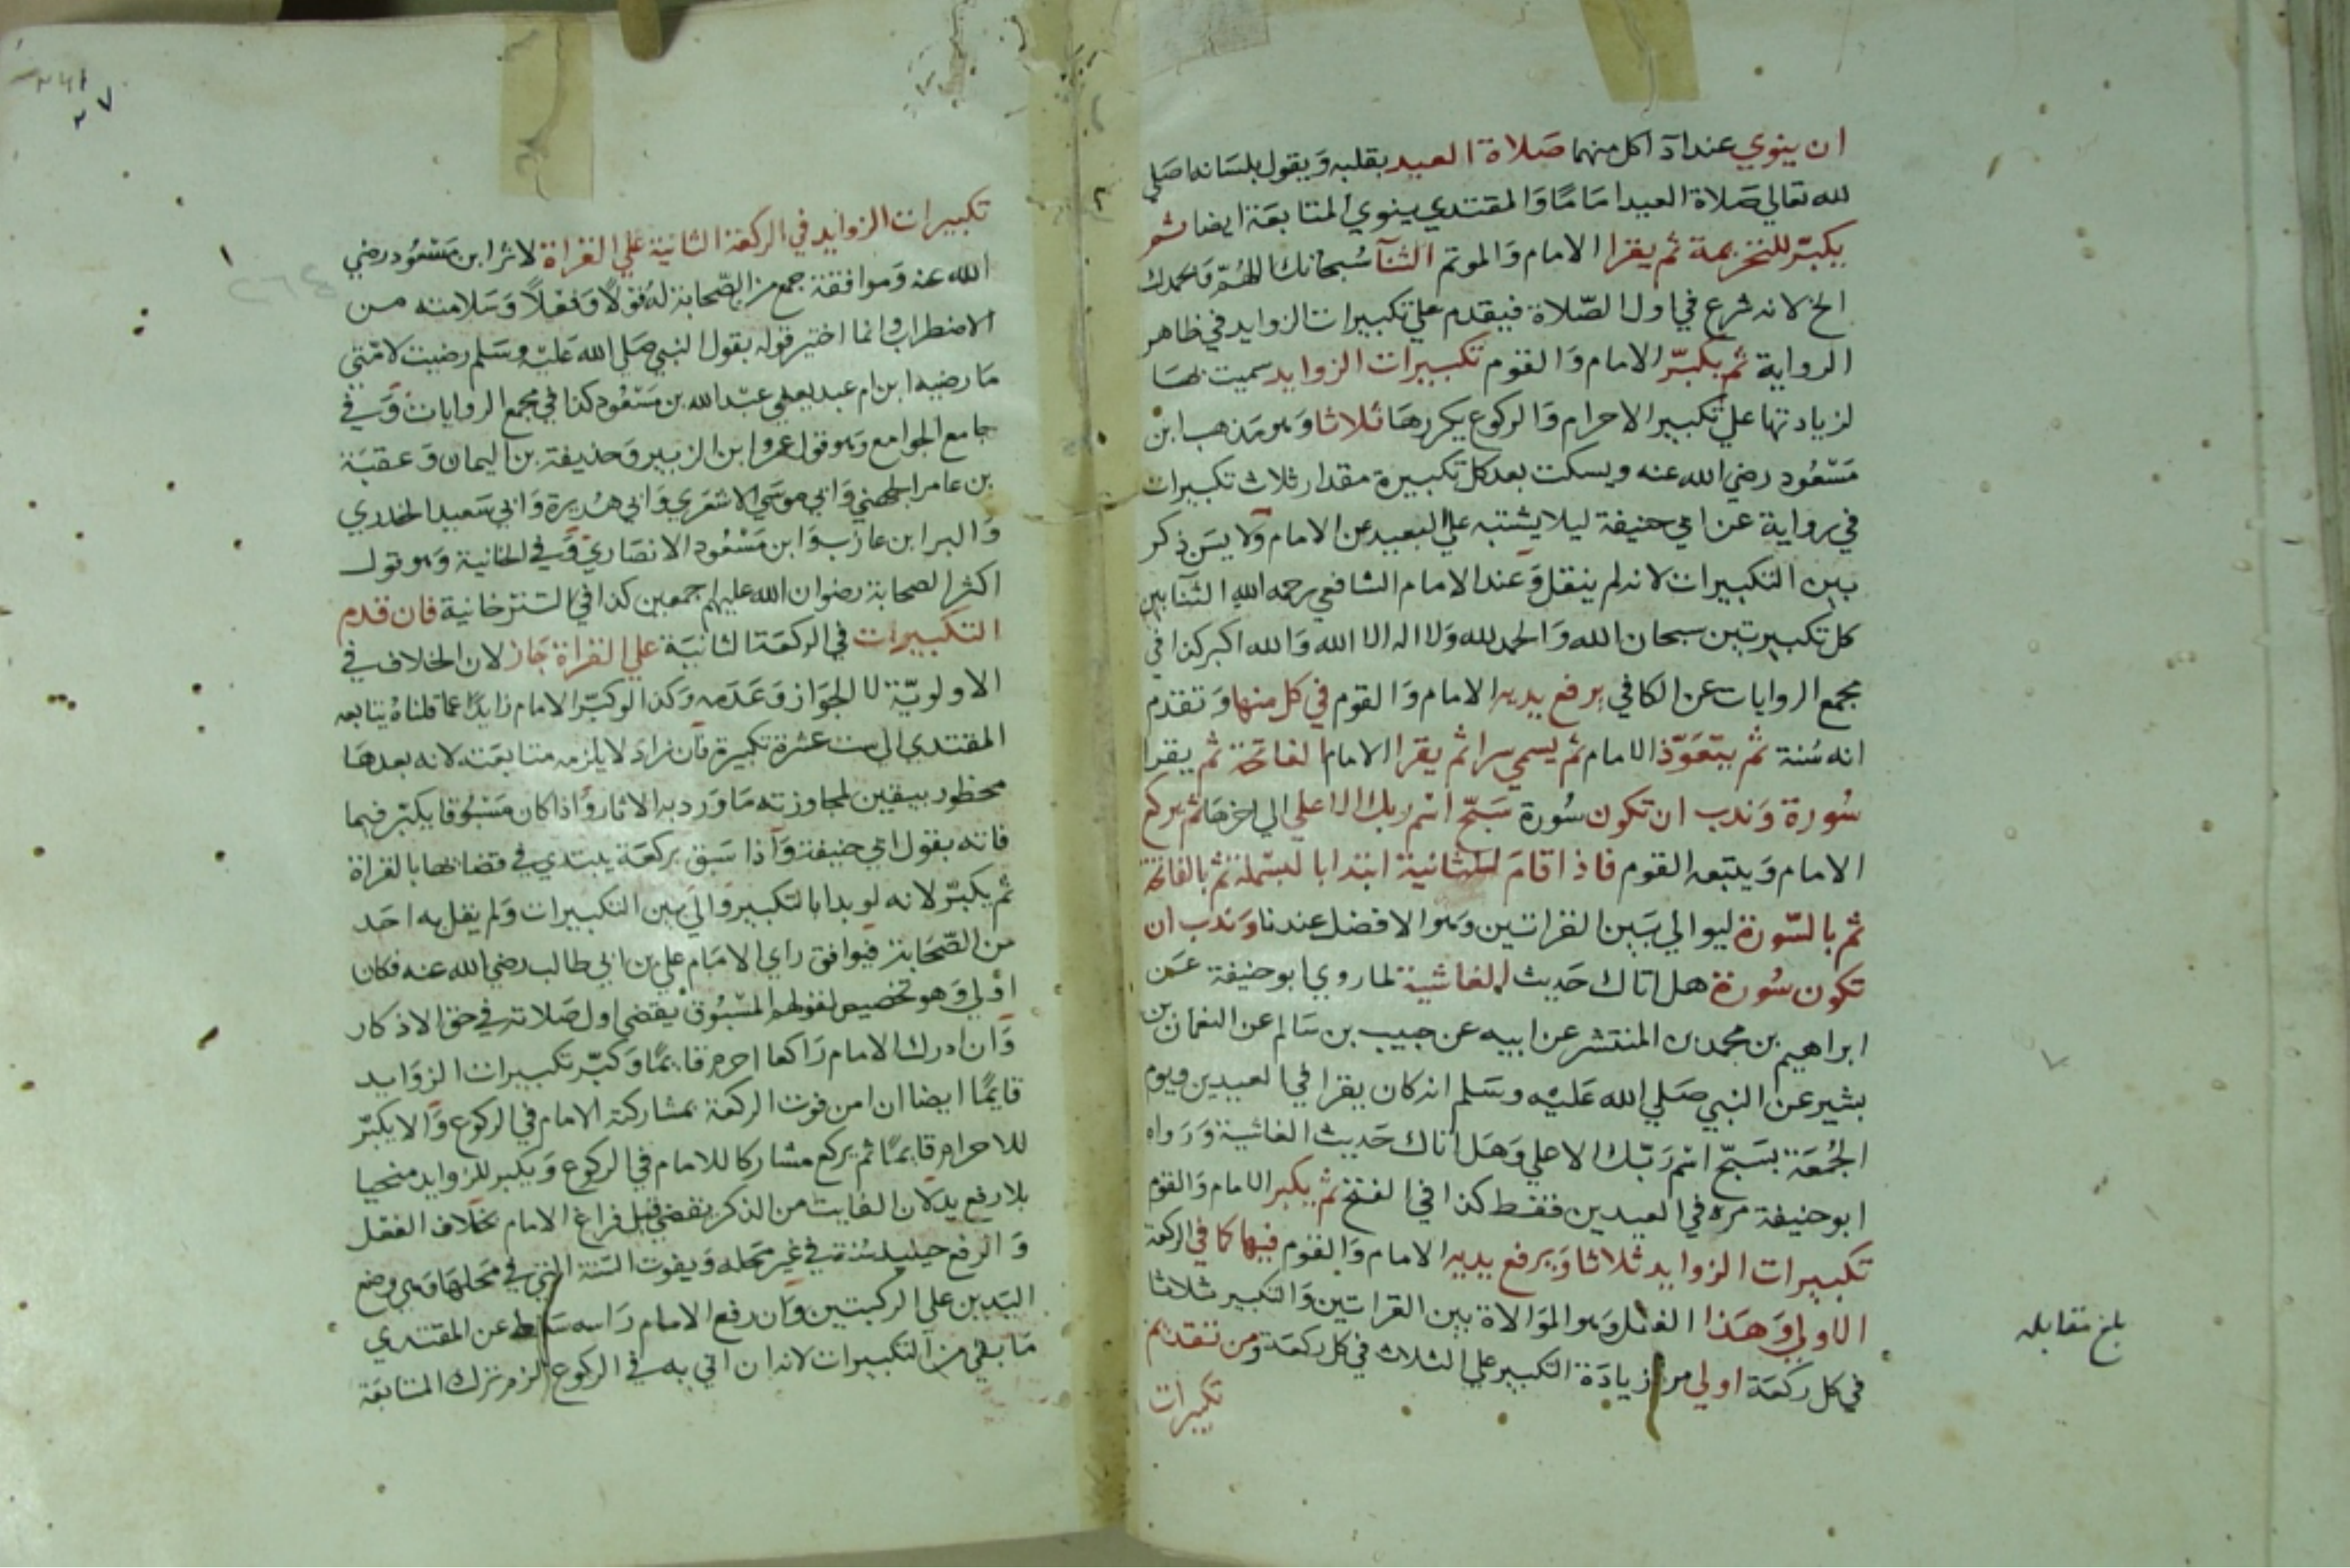 ان ينوي عند ادآ كل منهما صَلاة العيد بقلبه وَيقول بلسَانه اصَلي
لله تعالي صَلاة العيد امَامًا وَالمقتدي ينوي المتابعَة ايضا ثم
يكبّر للتحريمة ثم يقرا الامام وَالموتم الثنآ سُبحانك اللهُمّ وَبحمدك
الخ لانه شرع في اول الصّلاة فيقدم علي تكبيرات الزوايد في ظاهر
الرواية ثم يكبّر الامام وَالقوم تكبيرات الزوايد سميت بهَا
لزيادتها علي تكبير الاحرام وَالركوع يكررهَا ثلاثا وَهو مَذهب ابن
مَسْعُود رضي الله عنه ويسكت بعد كل تكبيرة مقدار ثلاث تكبيرات
في رواية عن ابي حنيفة ليلا يشتبه علي البعيد عن الامام وَلا يسَن ذكر
بين التكبيرات لانه لم ينقل وَعند الامام الشافعي رحمه الله الثنا بين
كل تكبيرتين سبحان الله وَالحمد لله وَلا اله الا الله وَالله اكبر كذا في
مجمع الروايات عن الكافي يرفع يديه الامام وَالقوم في كل منها وَتقدم
انه سُنة ثم يتعَوّذ الامام ثم يسمي سرا ثم يقرا الامام الفاتحة ثم يقرا
سُورة وَندب ان تكون سُورة سَبّح اسْم ربك الاعلي الي اخرهَا ثم يركع
الامام وَيتبعه القوم فاذا قامَ للثانية ابتدا بالبسَملة ثم بالفاتحة
ثم بالسّورة ليوالي بَين القراتين وَهو الافضل عندنا وَندب ان
تكون سُورة هل اتاك حَديث الغاشية لما روي ابو حنيفة عَن
ابراهيم بن محمد بن المنتشر عن ابيه عن حبيب بن سَالم عن النعمان بن
بشير عن النبي صَلي الله عَليْه وسَلم انه كان يقرا في العيدين ويوم
الجُمعَة بسَبّح اسْم رَبّك الاعلي وَهَل اتاك حَديث الغاشية وَرَواه
ابو حنيفة مرة في العيدين فقط كذا في الفتح ثم يكبر الامام وَالقوم
تكبيرات الزوايد ثلاثا وَيرفع يديه الامام وَالقوم فيها كما في الركعة
الاولي وَهَذا الفعل وَهو الموَالاة بين القراتين وَالتكبير ثلاثا
في كل ركعَة اولي من زيادَة التكبير علي الثلاث في كل ركعَة وَمن تقديم
تكبيرات
بلغ مقابله
تكبيرات الزوايد في الركعة الثانية علي القراة لاثر ابن مَسْعُود رضي
الله عنه وَموافقة جمع من الصّحابة لهُ قولاً وَفعلاً وَسَلامته من
الاضطراب وانما اختير قوله بقول النبي صَلي الله عَليْه وسَلم رضيت لامّتي
مَا رضيه ابن ام عبد يعني عبْد الله بن مَسْعُود كذا في مجمع الروايات وَفي
جامع الجوامع وَهو قول عمر وابن الزبير وَحذيفة بن اليمان وَعقبَة
بن عامر الجهني وَابي موسَي الاشعَري وَابي هُريرة وَابي سَعيد الخدري
وَالبرا بن عازب وَابن مَسْعُود الانصَاري وَفي الخانية وَهو قول
اكثر الصحابة رضوان الله عليهم اجمعين كذا في التترخانية فان قدم
التكبيرات في الركعَة الثانيَة علي القراة جَاز لان الخلاف في
الاولويّة لا الجوَاز وَعَدَمه وَكذا لو كبّر الامام زايدًا عما قلناهُ يتابعه
المقتدي الي ست عشرة تكبيرة فان زادَ لا يلزمه متابعَته لانه بعدهَا
محظور بيقين لمجاوزته مَا وَرَد به الاثار وَاذا كان مَسْبُوقا يكبّر فيما
فاته بقول ابي حنيفة وَاذا سَبق بركعَة يبتدي في قضائها بالقراة
ثم يكبّر لانه لو بدا بالتكبير وَالي بَين التكبيرات وَلم يقل به احَد
من الصّحَابة فيوافق راي الامَام علي بن ابي طالب رضي الله عنه فكان
اوْلي وَهو تخصيص لقولهم المسْبُوق يقضي اول صَلاته في حق الاذكار
وَان ادرك الامام رَاكعا احرم قايمًا وَكبّر تكبيرات الزوَايد
قايمًا ايضا ان امن فوت الركعَة بمشاركة الامام في الركوع وَالا يكبّر
للاحرام قايمًا ثم يركع مشاركا للامام في الركوع وَيكبر للزوايد منحنيا
بلا رفع يد لان الفايت من الذكر يقضي قبل فراغ الامام بخلاف الفعل
وَالرفع حينيذ سُنة في غير مَحله وَيفوت السّنة التي في مَحلهَا وَهي وضع
اليَدين علي الركبتين وَان رفع الامام رَاسه سَقط عن المقتدي
مَا بقي من التكبيرات لانه ان اتي به في الركوع لزم ترك المتابعَة